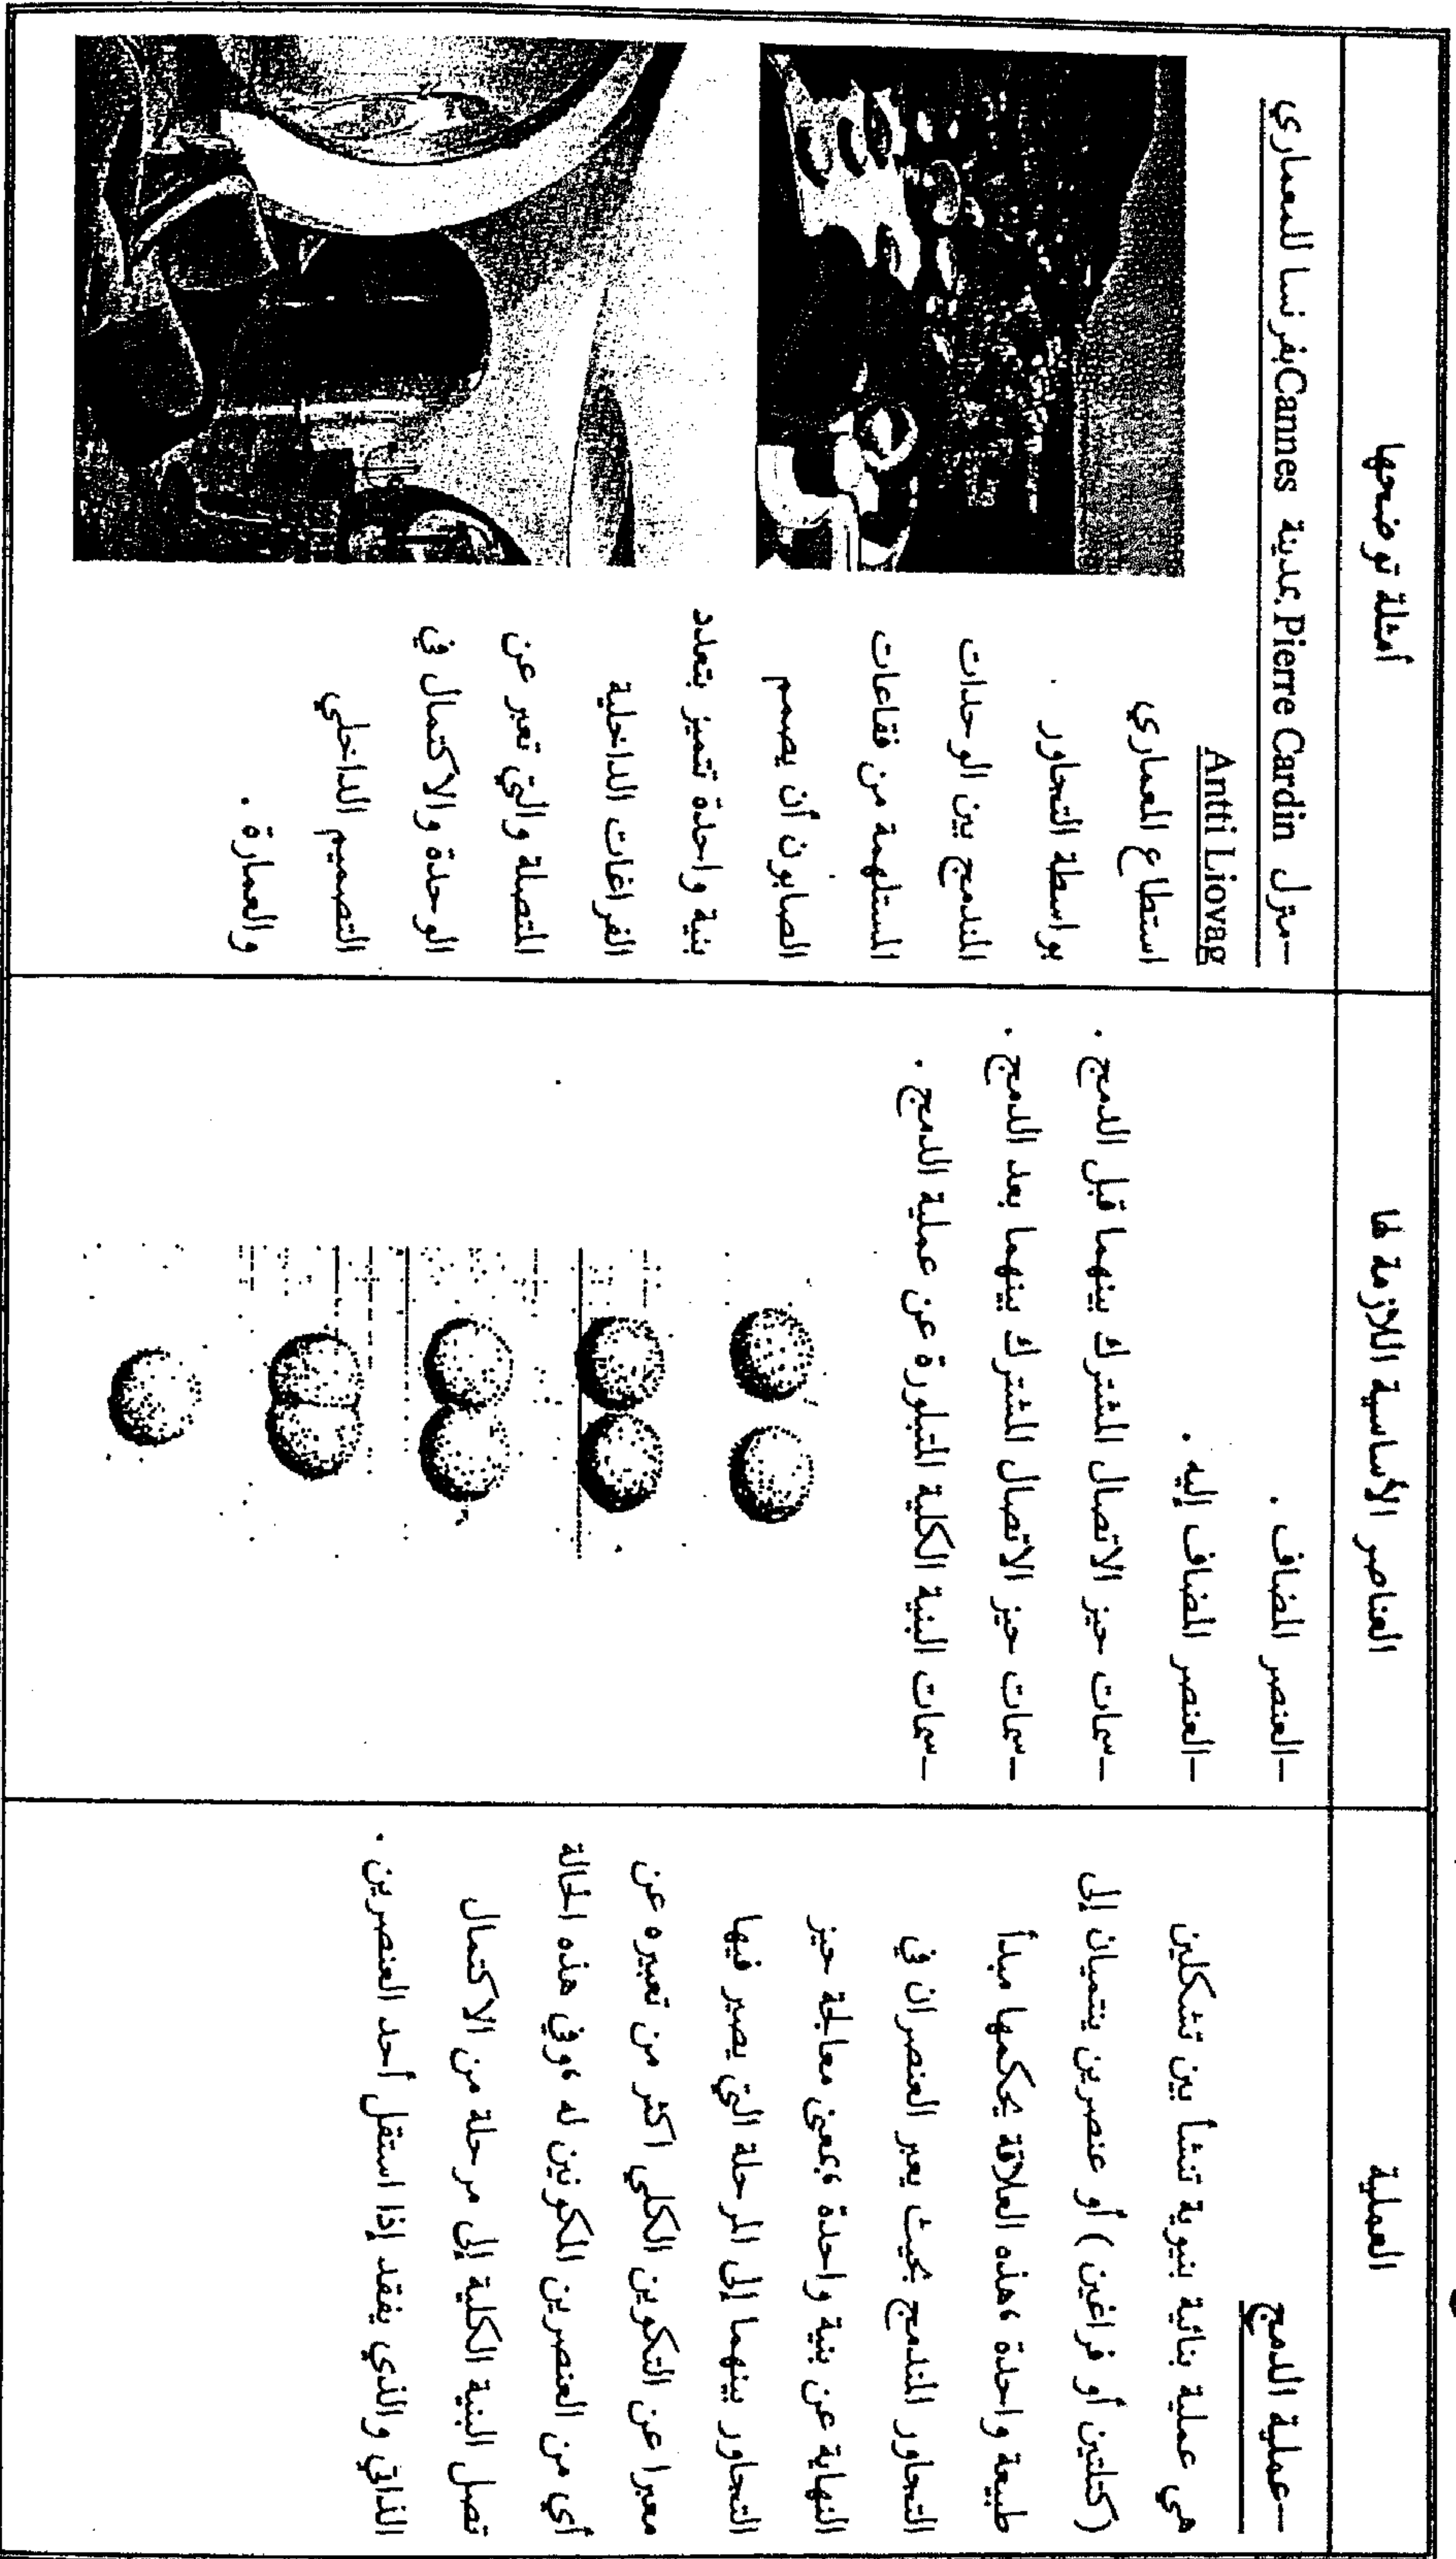 العملية
العناصر الأساسية اللازمة لها
أمثلة توضحها
–عملية الدمج
هي عملية بنائية بنيوية تنشأ بين تشكلين
(كتلتين أو فراغين) أو عنصرين ينتميان إلى
طبيعة واحدة ،هذه العلاقة يحكمها مبدأ
التجاور المندمج بحيث يعبر العنصران في
النهاية عن بنية واحدة ،بمعنى معالجة حيز
التجاور بينهما إلى المرحلة التي يصير فيها
معبرا عن التكوين الكلي اكثر من تعبيره عن
أي من العنصرين المكونين له ،وفي هذه الحالة
تصل البنية الكلية إلى مرحلة من الاكتمال
الذاتي والذي يفقد إذا استقل أحد العنصرين .
–العنصر المضاف .
–العنصر المضاف إليه .
–سمات حيز الاتصال المشترك بينهما قبل الدمج .
–سمات حيز الاتصال المشترك بينهما بعد الدمج .
–سمات البنية الكلية المتبلورة عن عملية الدمج .
–منزل Pierre Cardin بمدينة Cannes بفرنسا للمعماري
Antti Liovag
استطاع المعماري
بواسطة التجاور
المندمج بين الوحدات
المستلهمة من فقاعات
الصابون أن يصمم
بنية واحدة تتميز بتعدد
الفراغات الداخلية
المتصلة والتي تعبر عن
الوحدة والاكتمال في
التصميم الداخلي
والعمارة .